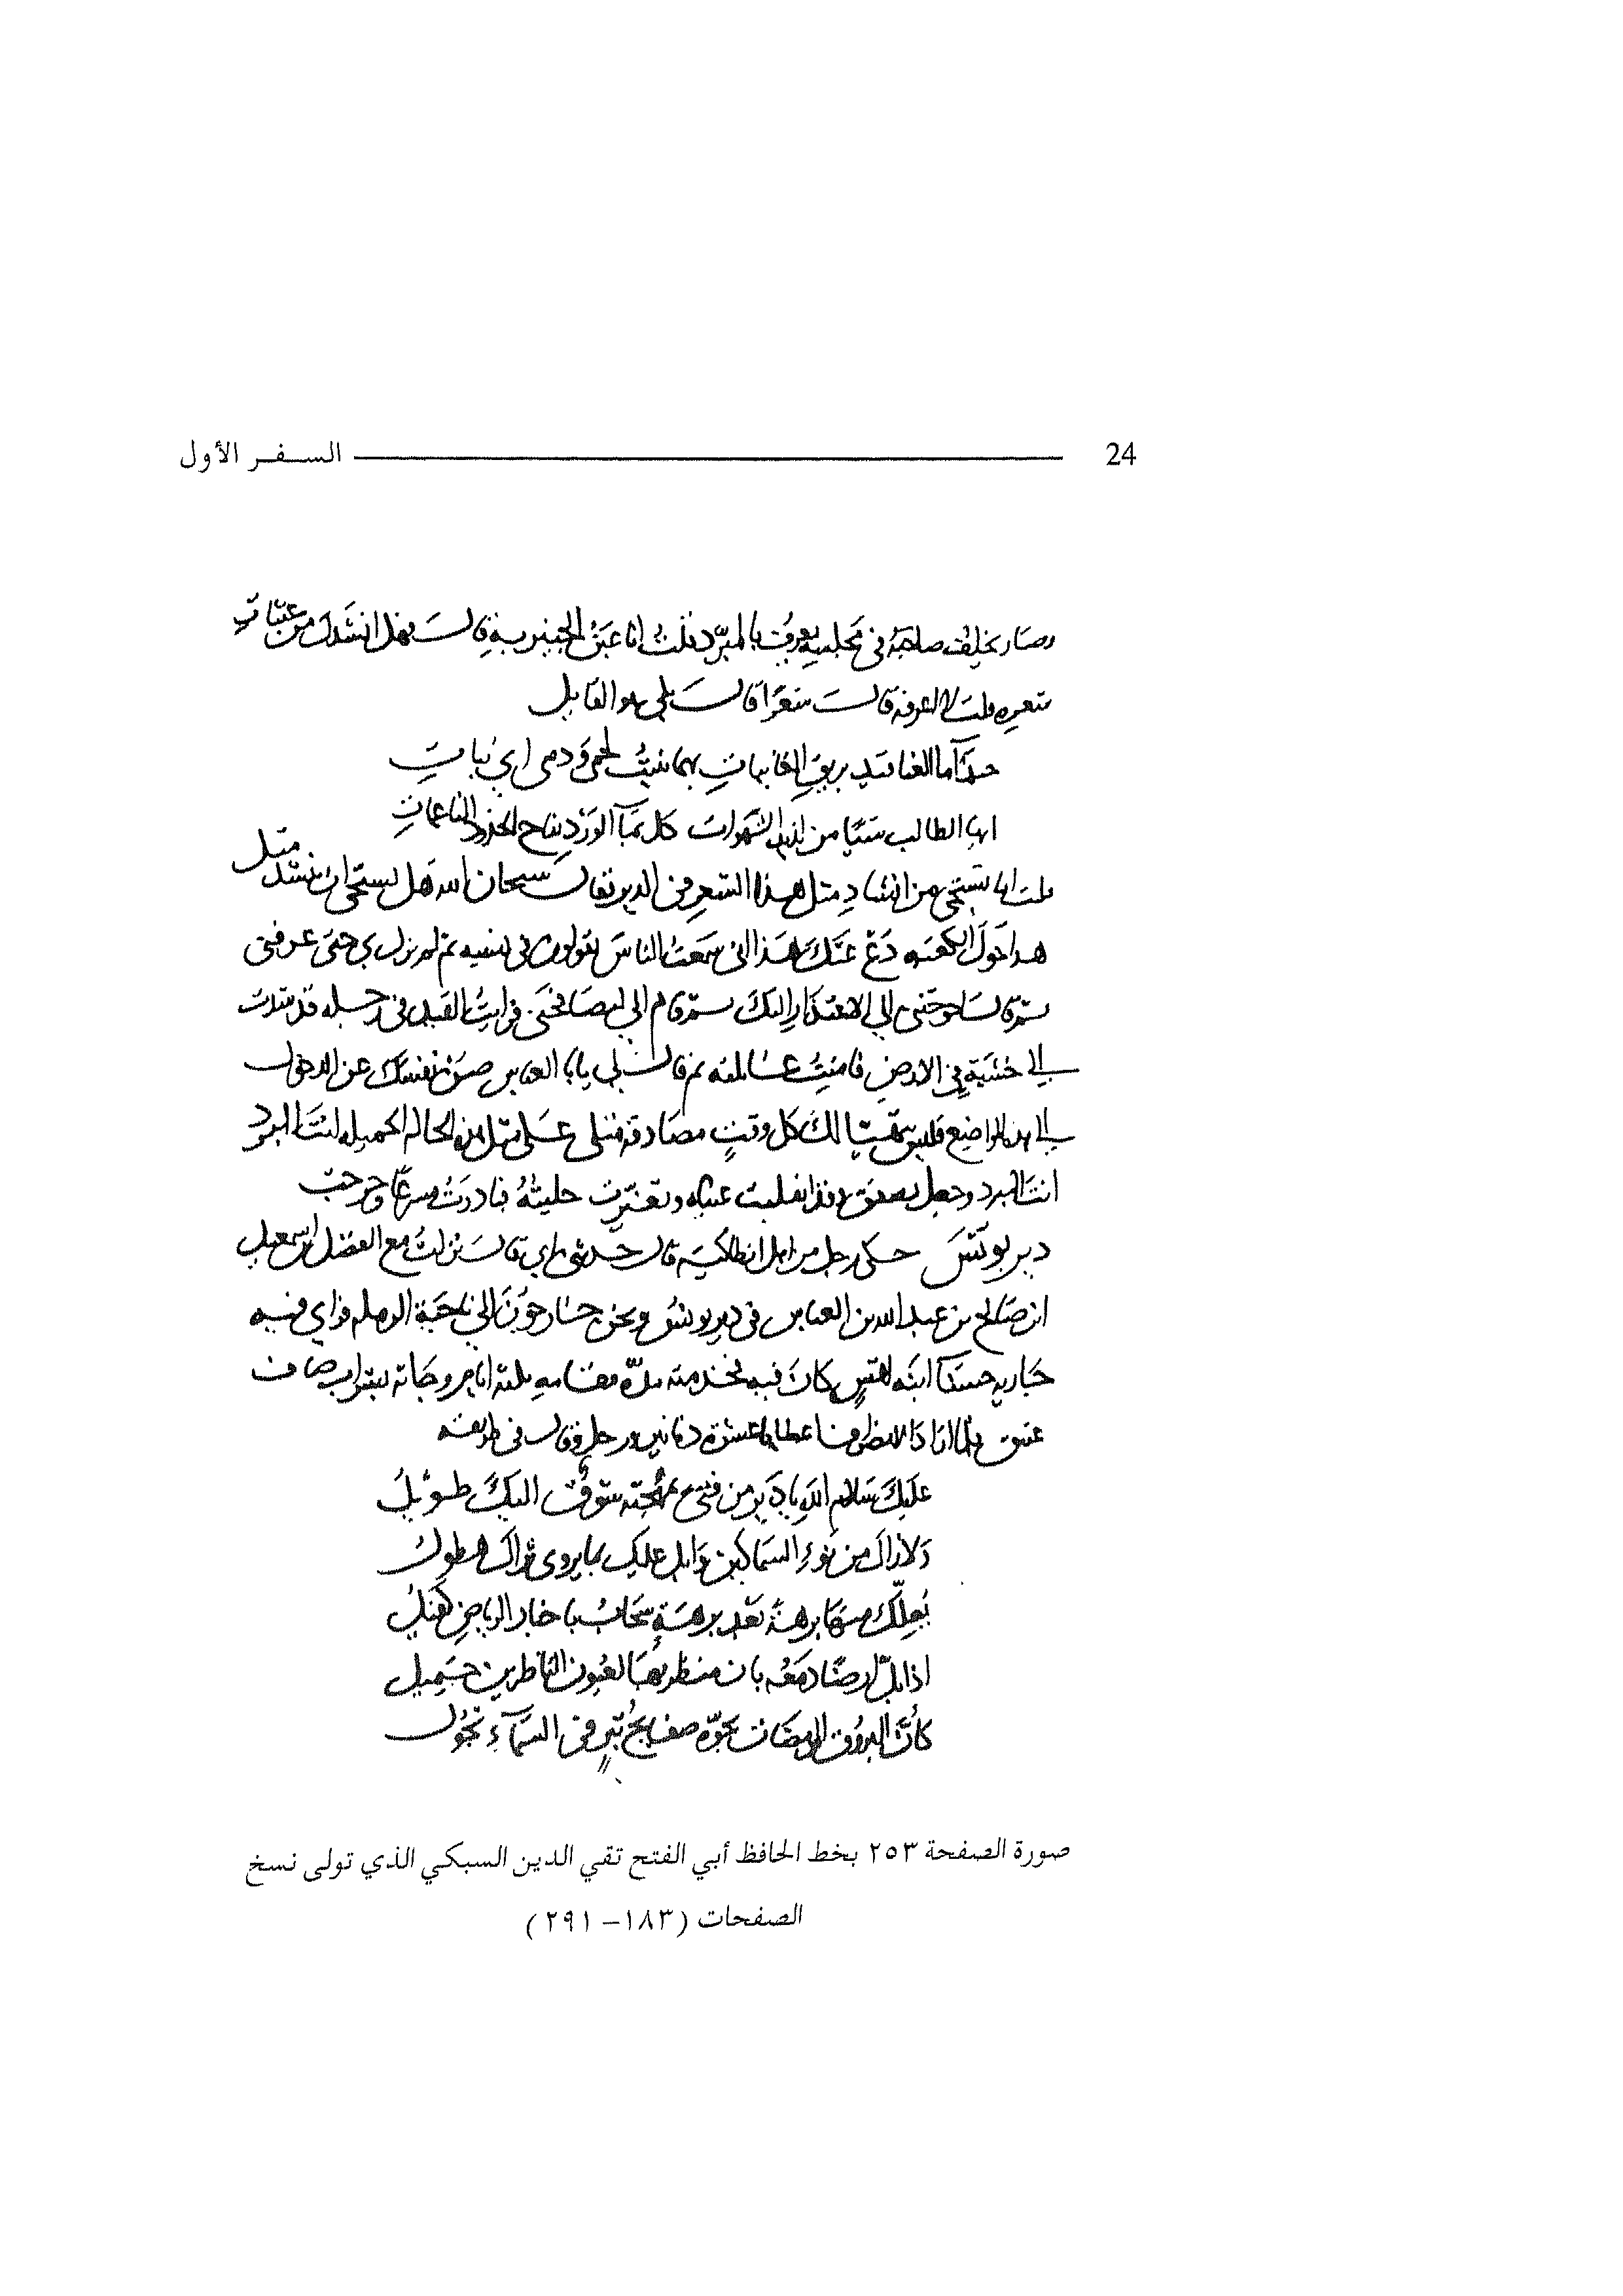 24 السفر الأول
وصار يخلف صاحبه في مجلسه يعرف بالمبرد قلت انا عين الخبير به قال فهل انشدك من عبثات
شعره قلت لا اعرفه قال شعرا قال بلى هو القايل
حبذا ما العناقيد بريق الغانيات بهما ينبت لحمي ودمي اي نبات
ايها الطالب شيا من لذيذ الشهوات كل بماء الورد تفاح الخدود الناعمات
قلت اما تستحي من انشاد مثل هذا الشعر في الدير فقال سبحان الله هل يستحي ان ينشد مثل
هذا حول الكعبه دع عنك هذا اني سمعت الناس يقولون في نسبه ثم لم يزل بي حتى عرفني
ثم قال احوجتني الى الاعتذار اليك ثم قام الي ليصافحني فرايت القيد في رجله قد شدت
الى خشبة في الارض فامنت غايلته ثم قال لي يا با العباس صن نفسك عن الدخول
الى هذه المواضع فليس يتهيا لك كل وقت مصادفة مثلي على مثل هذه الحال الجميله انت المبرد
انت المبرد وجعل يصفق وقد انقلبت عينه وتغيرت حليته فبادرت مسرعا وخرجت
دير بونس حكى رجل من اهل انطاكية قال حدثني ابي قال نزلت مع الفضل بن اسمعيل
ابن صالح بن عبد الله بن العباس في دير بونس ونحن خارجون الى ناحية الرمله فراى فيه
جاريه حسنا ابنه لقس كان فيه تخدمته مدة مقامه ثلثة ايام وجاته بشراب صاف
عتيق فلما اراد الانصراف اعطاها عشرة دنانير ورحل وقال في طريقه
عليك سلام الله يا دير من فتى بمهجته شوق اليك طويل
ولا زال من نوء السماكين وابل عليك بما يروي ثراك هطول
يعلك منها برهة بعد برهة سحاب باحيا الرياض كفيل
اذا بل ارضا دمعه بان منظر بها لعيون الناظرين جميل
كأن البروق الومضات بجوه صفايح تبر في السماء تجول
صورة الصفحة ٢٥٣ بخط الحافظ أبي الفتح تقي الدين السبكي الذي تولى نسخ
الصفحات (١٨٣–٢٩١)